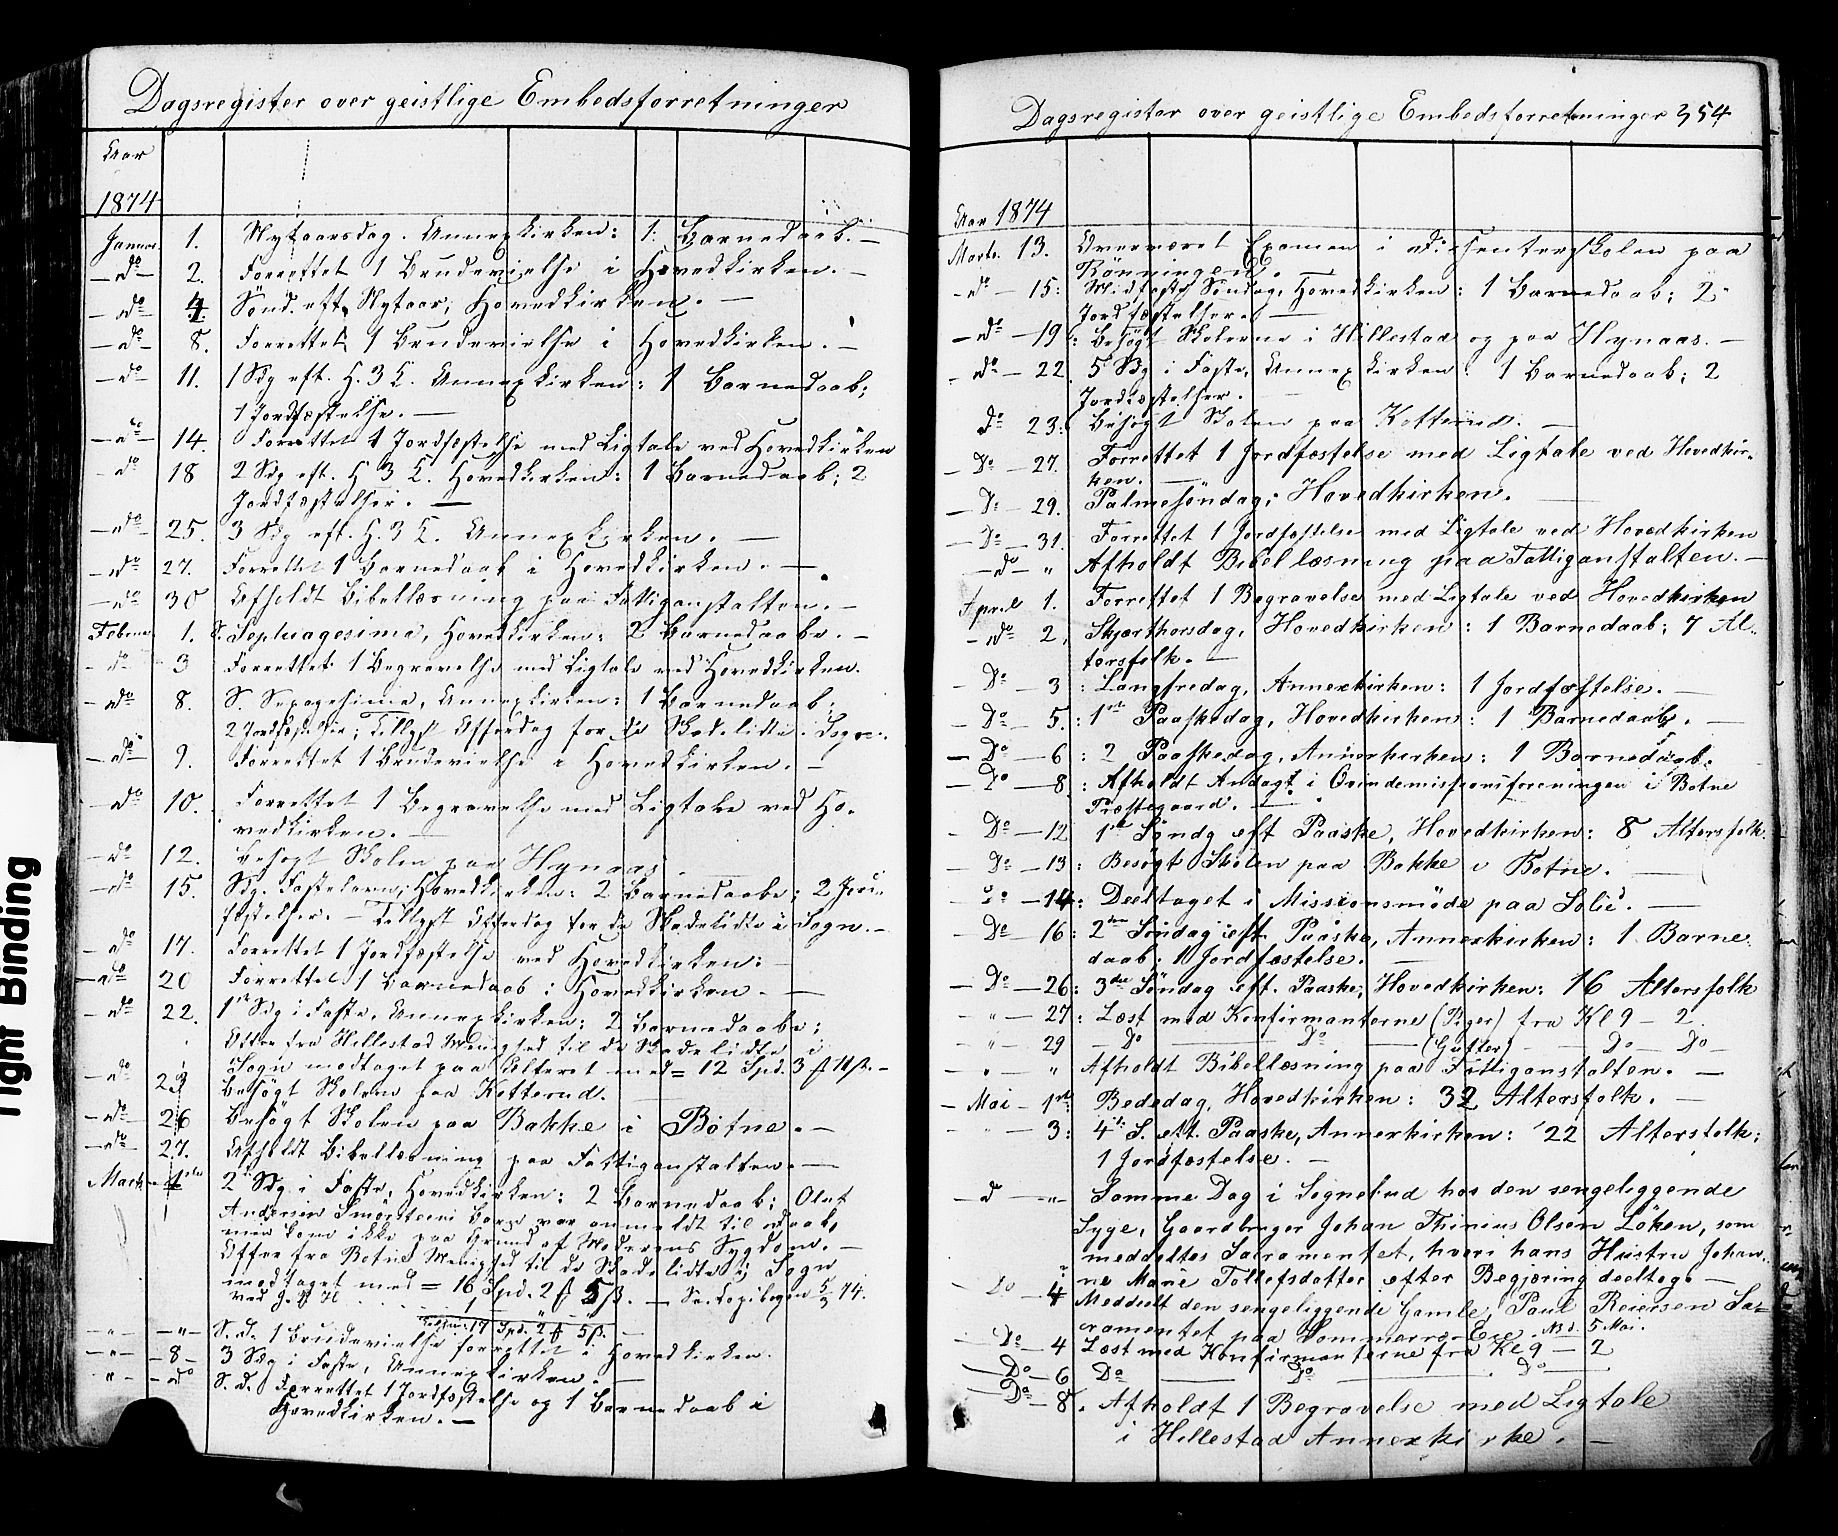 Dagsregister over geistlige Embedsforretninger
Aar
1874
Januar 1. Nytaarsdag. Annexkirken: 1 Barnedaab. —
— do — 2. Forrettet 1 Brudevielse i Hovedkirken. —
— do — 4. Sönd. eft. Nytaar, Hovedkirken. —
— do — 8. Forrettet 1 Brudevielse i Hovedkirken. —
— do — 11. 1 Sdg eft. H. 3 K. Annexkirken: 1 Barnedaab;
1 Jordfæstelse. —
— do — 14. Forrettet 1 Jordfæstelse med Ligtale ved Hovedkirken
— do 18 2 Sdg eft. H 3 K. Hovedkirken: 1 Barnedaab; 2
Jordfæstelser. —
— do — 25. 3 Sdg eft. H. 3 K. Annexkirken. —
— do — 27. Forrettet 1 Barnedaab i Hovedkirken. —
— do — 30 Afholdt Bibellæsning paa Fattiganstalten. —
Februar 1. S. Septuagesima, Hovedkirken: 2 Barnedaabe. —
— do — 3 Forrettet 1 Begravelse med Ligtale ved Hovedkirken.
— do — 8. S. Sexagesima, Annexkirken: 1 Barnedaab;
2 Jordfæstelser; Tillyst Offerdag for de Skadelidte i Sogn.
— do — 9. Forrettet 1 Brudevielse i Hovedkirken. —
— do 10. Forrettet 1 Begravelse med Ligtale ved Ho-
vedkirken. —
— do — 12. Besögt Skolen paa Hynaas. —
— do 15. Sdg. Fastelavn; Hovedkirken: 2 Barnedaabe; 2 Jord-
fæstelser. — Tillyst Offerdag for de Skadelidte i Sogn. —
— do — 17. Forrettet 1 Jordfæstelse ved Hovedkirken: —
— do 20 Forrettet 1 Barnedaab i Hovedkirken. —
— do — 22. 1ste Sdg i Faste, Annexkirken: 2 Barnedaabe;
Offer fra Hillestad Menighed til de Skadelidte i
Sogn modtaget paa Alteret med = 12 Spd. 3 —
— do — 23 Besögt Skolen paa Kotterud. —
— do — 26 Besögt Skolen paa Bakke i Botne. —
— do — 27. Afholdt Bibellæsning paa Fattiganstalten. —
Marts 1ste 2 Sdg i Faste, Hovedkirken: 2 Barnedaab; Olaf
Andersen Smörsteens Barn var anmeldt til Daab,
men kom ikke paa Grund af Moderens Sygdom. —
Offer fra Botne Menighed til de Skadelidte i Sogn
modtaget med = 16 Spd. 2 5 ß. — 5/3 74.
17 Spd. 2 5 ß.
— " — — " — S. d. 1 Brudevielse forrettet i Hovedkirken.
— " — — 8 — 3 Sdg i Faste, Annexkirken. —
" — — do S. d. Forrettet 1 Jordfæstelse og 1 Barnedaab i
Hovedkirken. —
Dagsregister over geistlige Embedsforretninger 354
Aar 1874
Marts 13. Overværet Examen i Dissenterskolen paa
Rönningen. —
— do — 15: Midfaste Söndag, Hovedkirken: 1 Barnedaab; 2
Jordfæstelser. —
— do — 19: Besögt Skolerne i Hillestad og paa Hynaas. —
— do — 22. 5 Sdg i Faste, Annexkirken: 1 Barnedaab; 2
Jordfæstelser. —
Do 23: Besögt Skolen paa Kotterud. —
— Do — 27. Forrettet 1 Jordfæstelse med Ligtale ved Hovedkir-
ken. —
— Do — 29. Palmesöndag; Hovedkirken. —
— Do — 31. Forrettet 1 Jordfæstelse med Ligtale ved Hovedkirken
— do — " Afholdt Bibellæsning paa Fattiganstalten. —
April 1. Forrettet 1 Begravelse med Ligtale ved Hovedkirken
— do — 2, Skjærthorsdag, Hovedkirken: 1 Barnedaab; 7 Al-
tersfolk. —
— Do — 3: Langfredag, Annexkirken: 1 Jordfæstelse. —
— Do — 5: 1ste Paaskedag, Hovedkirken: 1 Barnedaab. —
— Do — 6: 2 Paaskedag, Annexkirken: 1 Barnedaab.
— Do — 8: Afholdt Andagt i Qvindemissionsforeningen i Botne
Præstegaard. —
— Do — 12 1ste Söndg eft Paaske, Hovedkirken: 8 Altersfolk.
— Do — 13: Besögt Skolen paa Bakke i Botne. —
— Do — 14: Deeltaget i Missionsmöde paa Solie. —
— Do — 16: 2den Söndag eft. Paaske, Annexkirken: 1 Barne-
daab; 1 Jordfæstelse. —
— Do — 26: 3die Söndag eft. Paaske; Hovedkirken: 16 Altersfolk
— " — 27: Læst med Konfirmanterne (Piger) fra Kl 9 — 2.
— " — 29 — Do — Do — (Gutter) — Do — Do —
— " — " Afholdt Bibellæsning paa Fattiganstalten. —
— Mai — 1ste: Bededag, Hovedkirken: 32 Altersfolk. —
— " — 3: 4de S. eft. Paaske, Annexkirken: 22 Altersfolk;
1 Jordfæstelse. —
— d — " — Samme Dag i Sognebud hos den sengeliggende
Syge, Gaardbruger Johan Thinius Olsen Löken, som
meddeltes Sacramentet, hvori hans Hustru Johan-
ne Marie Tollefsdatter efter Begjæring deeltog. —
— Do — 4 Meddeelt den sengeliggende Gamle, Paul Reiersen Sa-
cramentet paa Sommerro-Eie. Nd. 5 Mai.
— Do — 4 Læst med Konfirmanterne fra Kl 9 — 2
— Do — 6 Do — Do — Do —
— Do — 8. Afholdt 1 Begravelse med Ligtale
i Hillestad Annexkirke. —
Tight Binding